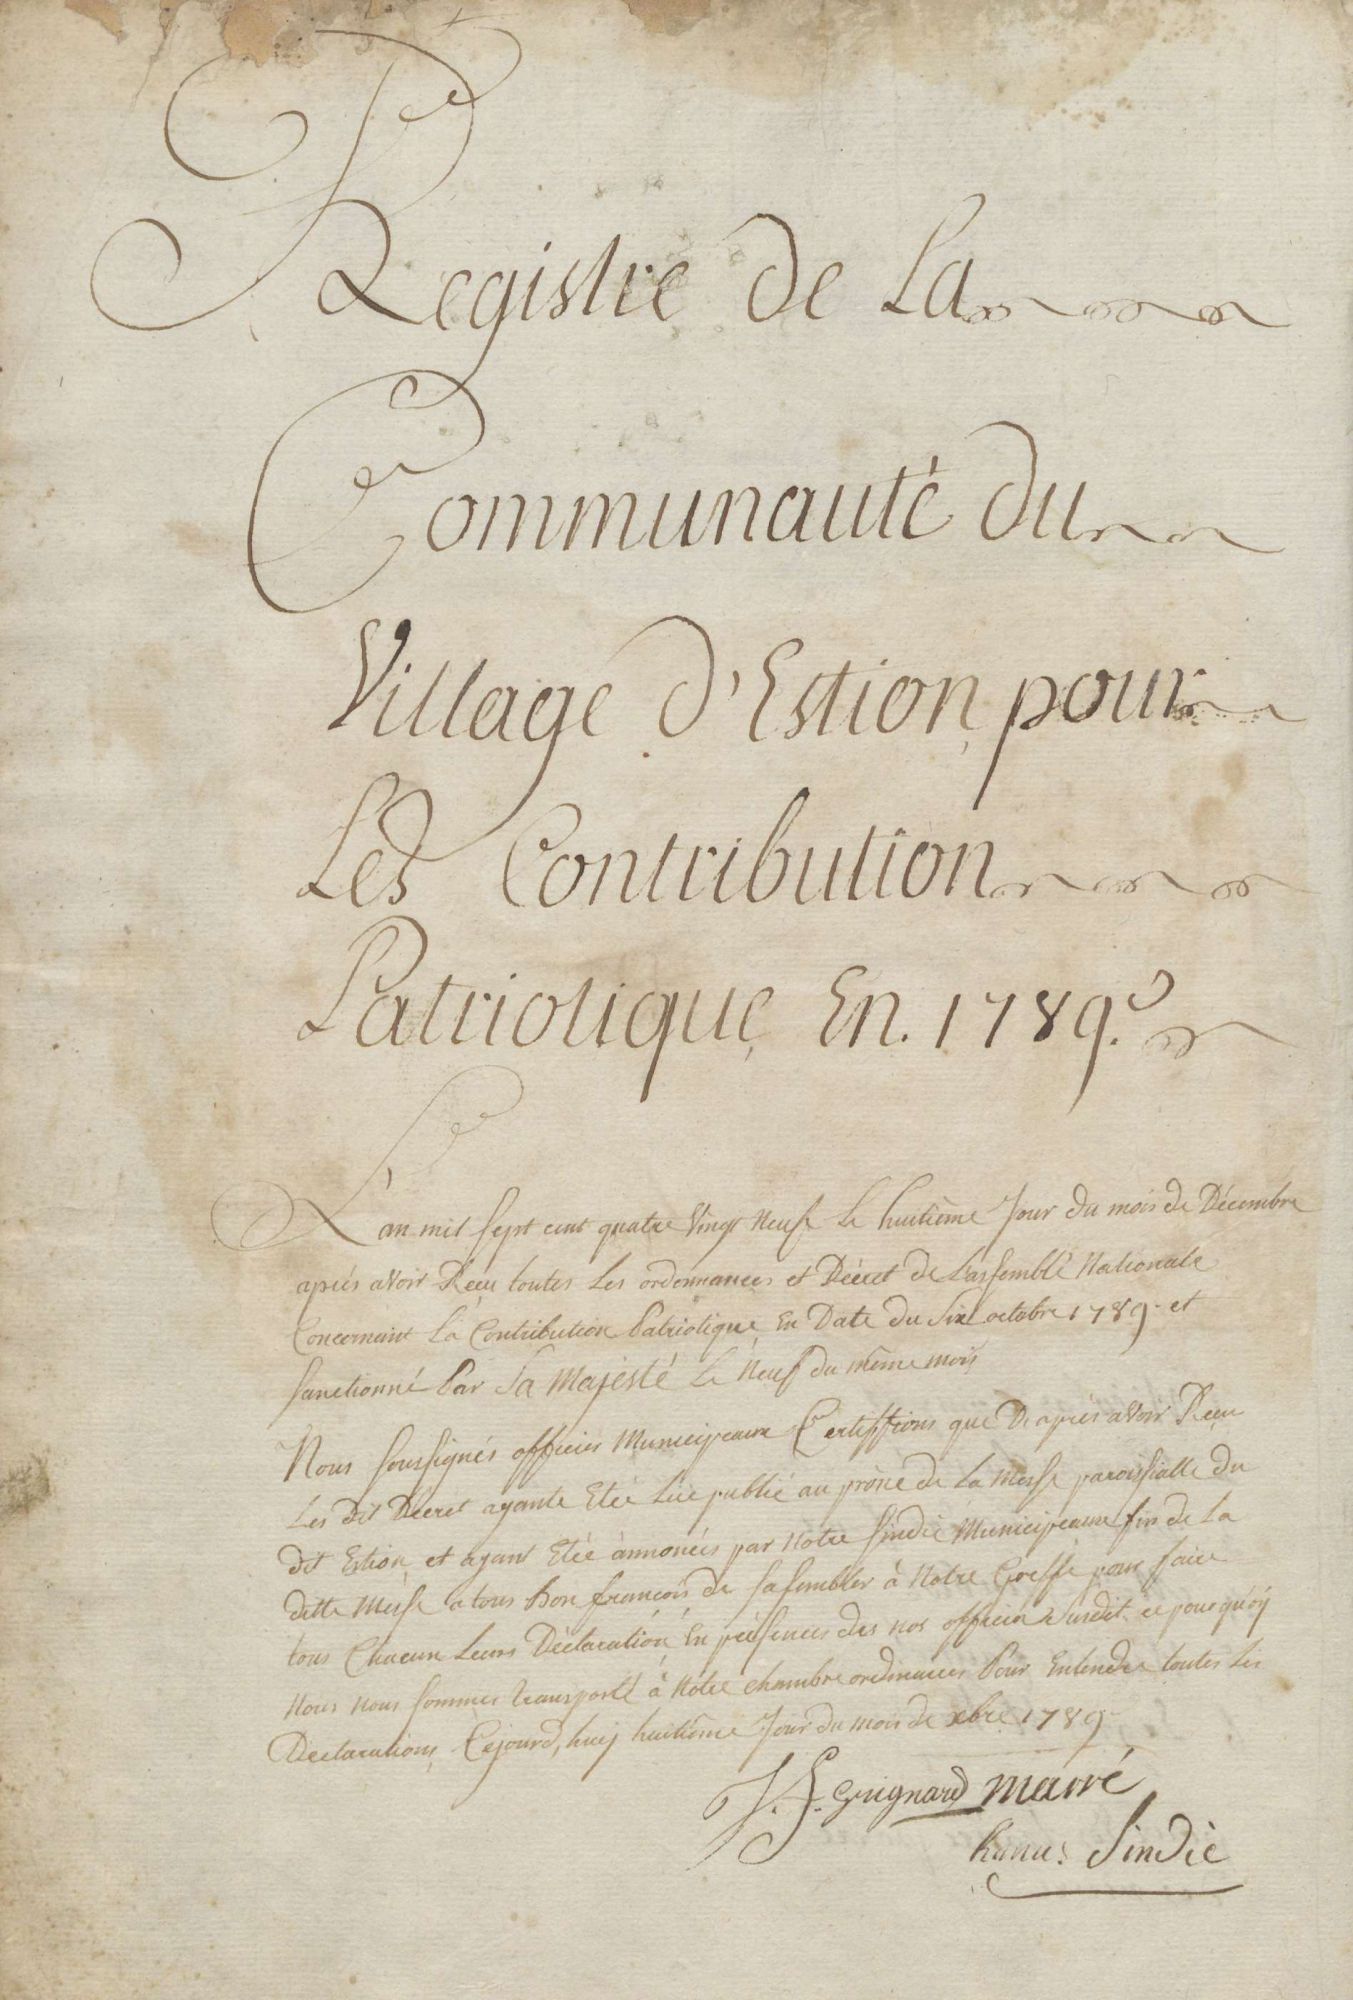 Registre de La
Communauté du
Village d'Estion pour
Les Contribution
Patriotique En. 1789.
L'an mil sept cent quatre Vingt Neuf Le huitième Jour du mois de Décembre
après avoir Reçu toutes Les ordonnances et Décret de L'assemblé Nationale
Concernant La Contribution Patriotique En Date du Six octobre 1789 et
sanctionné Par Sa Majesté Le Neuf du même mois
Nous soussignés officies Municipeaux Certiffions que D'après avoir Reçu
Les dit Décret ayante Etée Lue publié au prône de La Messe paroissialle du
dit Estion et ayant Etée annonées par Notre sindic Municipeaux fin de La
ditte Messe a tous bon françois de sasembler à Notre Greffe pour faire
tous Chacun Leurs Déclaration En présences des nos officies Susdit ce pourquoÿ
Nous nous sommes transporté à Notre chambre ordinaires Pour Entendre toutes Les
Déclarations Cejourd'huij huitième Jour du mois de xbre 1789
J. F. Grignard Marré
Sindic